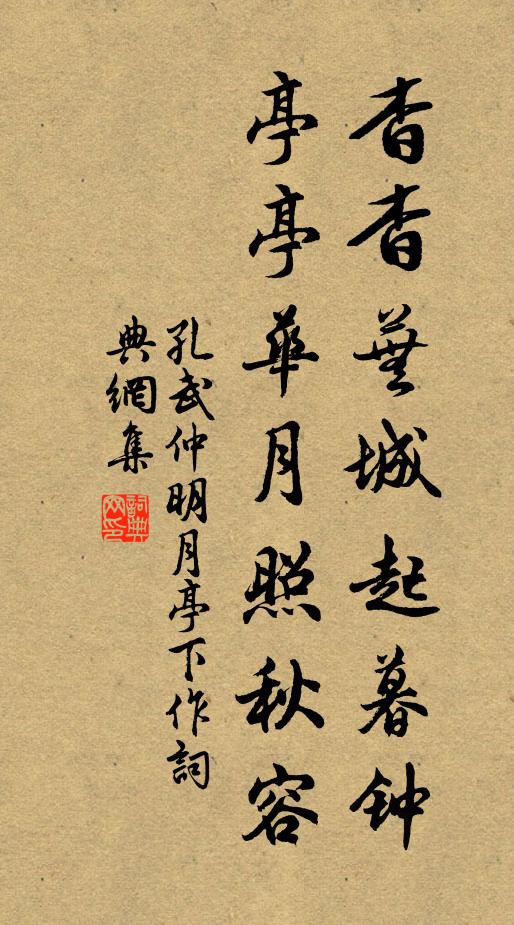 杳杳蕪城起暮钟
亭亭華月照秋容
孔武仲明月亭下作詞
典網集
詞典
网印